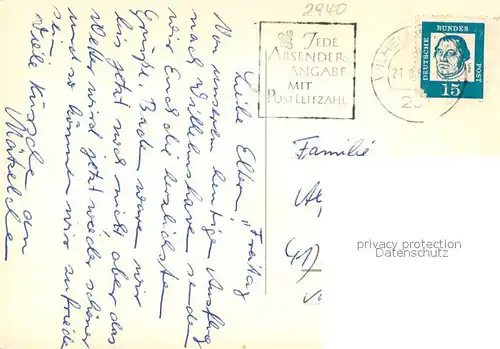 2940
JEDE
ABSENDER-
ANGABE
MIT
POSTLEITZAHL
DEUTSCHE
BUNDES
POST
15
"Freitag
Liebe Eltern,
Von unserem heutigen Ausflug
nach Wilhelmshaven senden
wir Euch die herzlichsten
Grüße. Baden waren wir
bis jetzt noch nicht, aber das
Wetter wird jetzt wieder schöner
und so können wir zufrieden
sein.
Viele Küsschen an
Familie
41)
privacy protection
Datenschutz